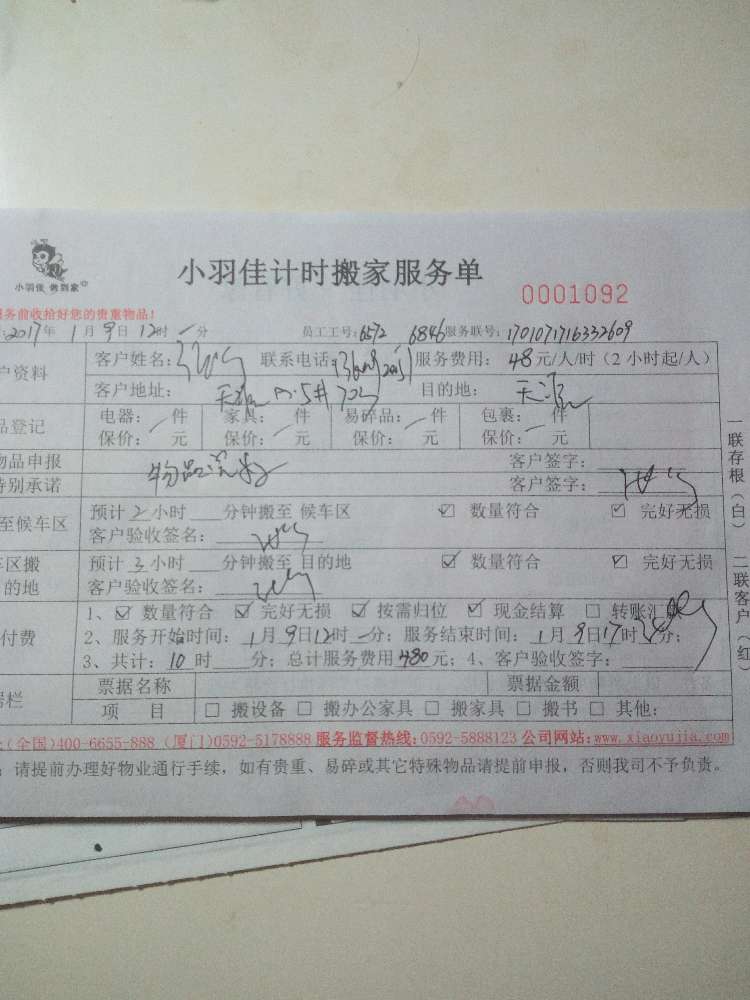 小羽佳计时搬家服务单
小羽佳 做到家
0001092
务前收拾好您的贵重物品!
2017年 1月 9日 12时 分 员工工号: 6572 6846 服务联号: 1701071716332609
户资料 客户姓名: 联系电话: 服务费用: 48元/人/时(2小时起/人)
客户地址: 目的地:
品登记 电器: 件 家具: 件 易碎品: 件 包裹: 件
保价: 元 保价: 元 保价: 元 保价: 元
物品申报 客户签字:
特别承诺 物品完好 客户签字:
至候车区 预计 2 小时 分钟搬至 候车区 ☑ 数量符合 ☑ 完好无损
客户验收签名:
车区搬 预计 3 小时 分钟搬至 目的地 ☑ 数量符合 ☑ 完好无损
的地 客户验收签名:
1、☑ 数量符合 ☑ 完好无损 ☑ 按需归位 ☑ 现金结算 □ 转账汇
付费 2、服务开始时间: 1月9日12时 分; 服务结束时间: 1月9日17时 分;
3、共计: 10 时 分; 总计服务费用 480 元; 4、客户验收签字:
票据名称 票据金额
栏 项 目 □ 搬设备 □ 搬办公家具 □ 搬家具 □ 搬书 □ 其他:
:(全国)400-6655-888 (厦门)0592-5178888 服务监督热线:0592-5888123 公司网站:www.xiaoyujia.com
: 请提前办理好物业通行手续, 如有贵重、易碎或其它特殊物品请提前申报, 否则我司不予负责。
一联存根(白) 二联客户(红)